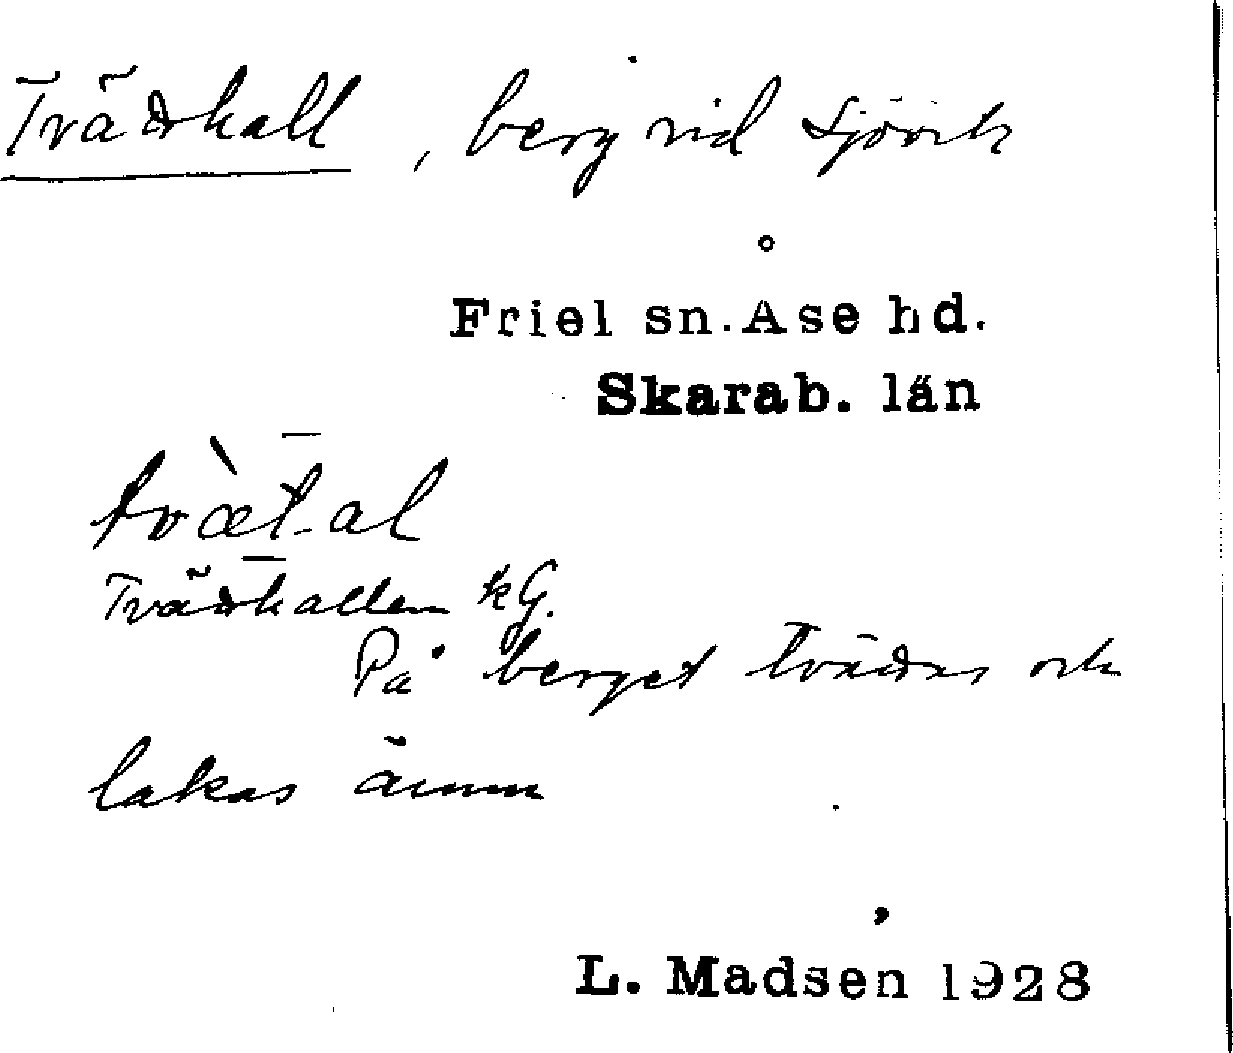 Trädhall, berg vid Sjövik
Friel sn. Åse hd.
Skarab. län
tvæt-al
Trädhallen kG.
På berget trädas och
lakas
L. Madsen 1928